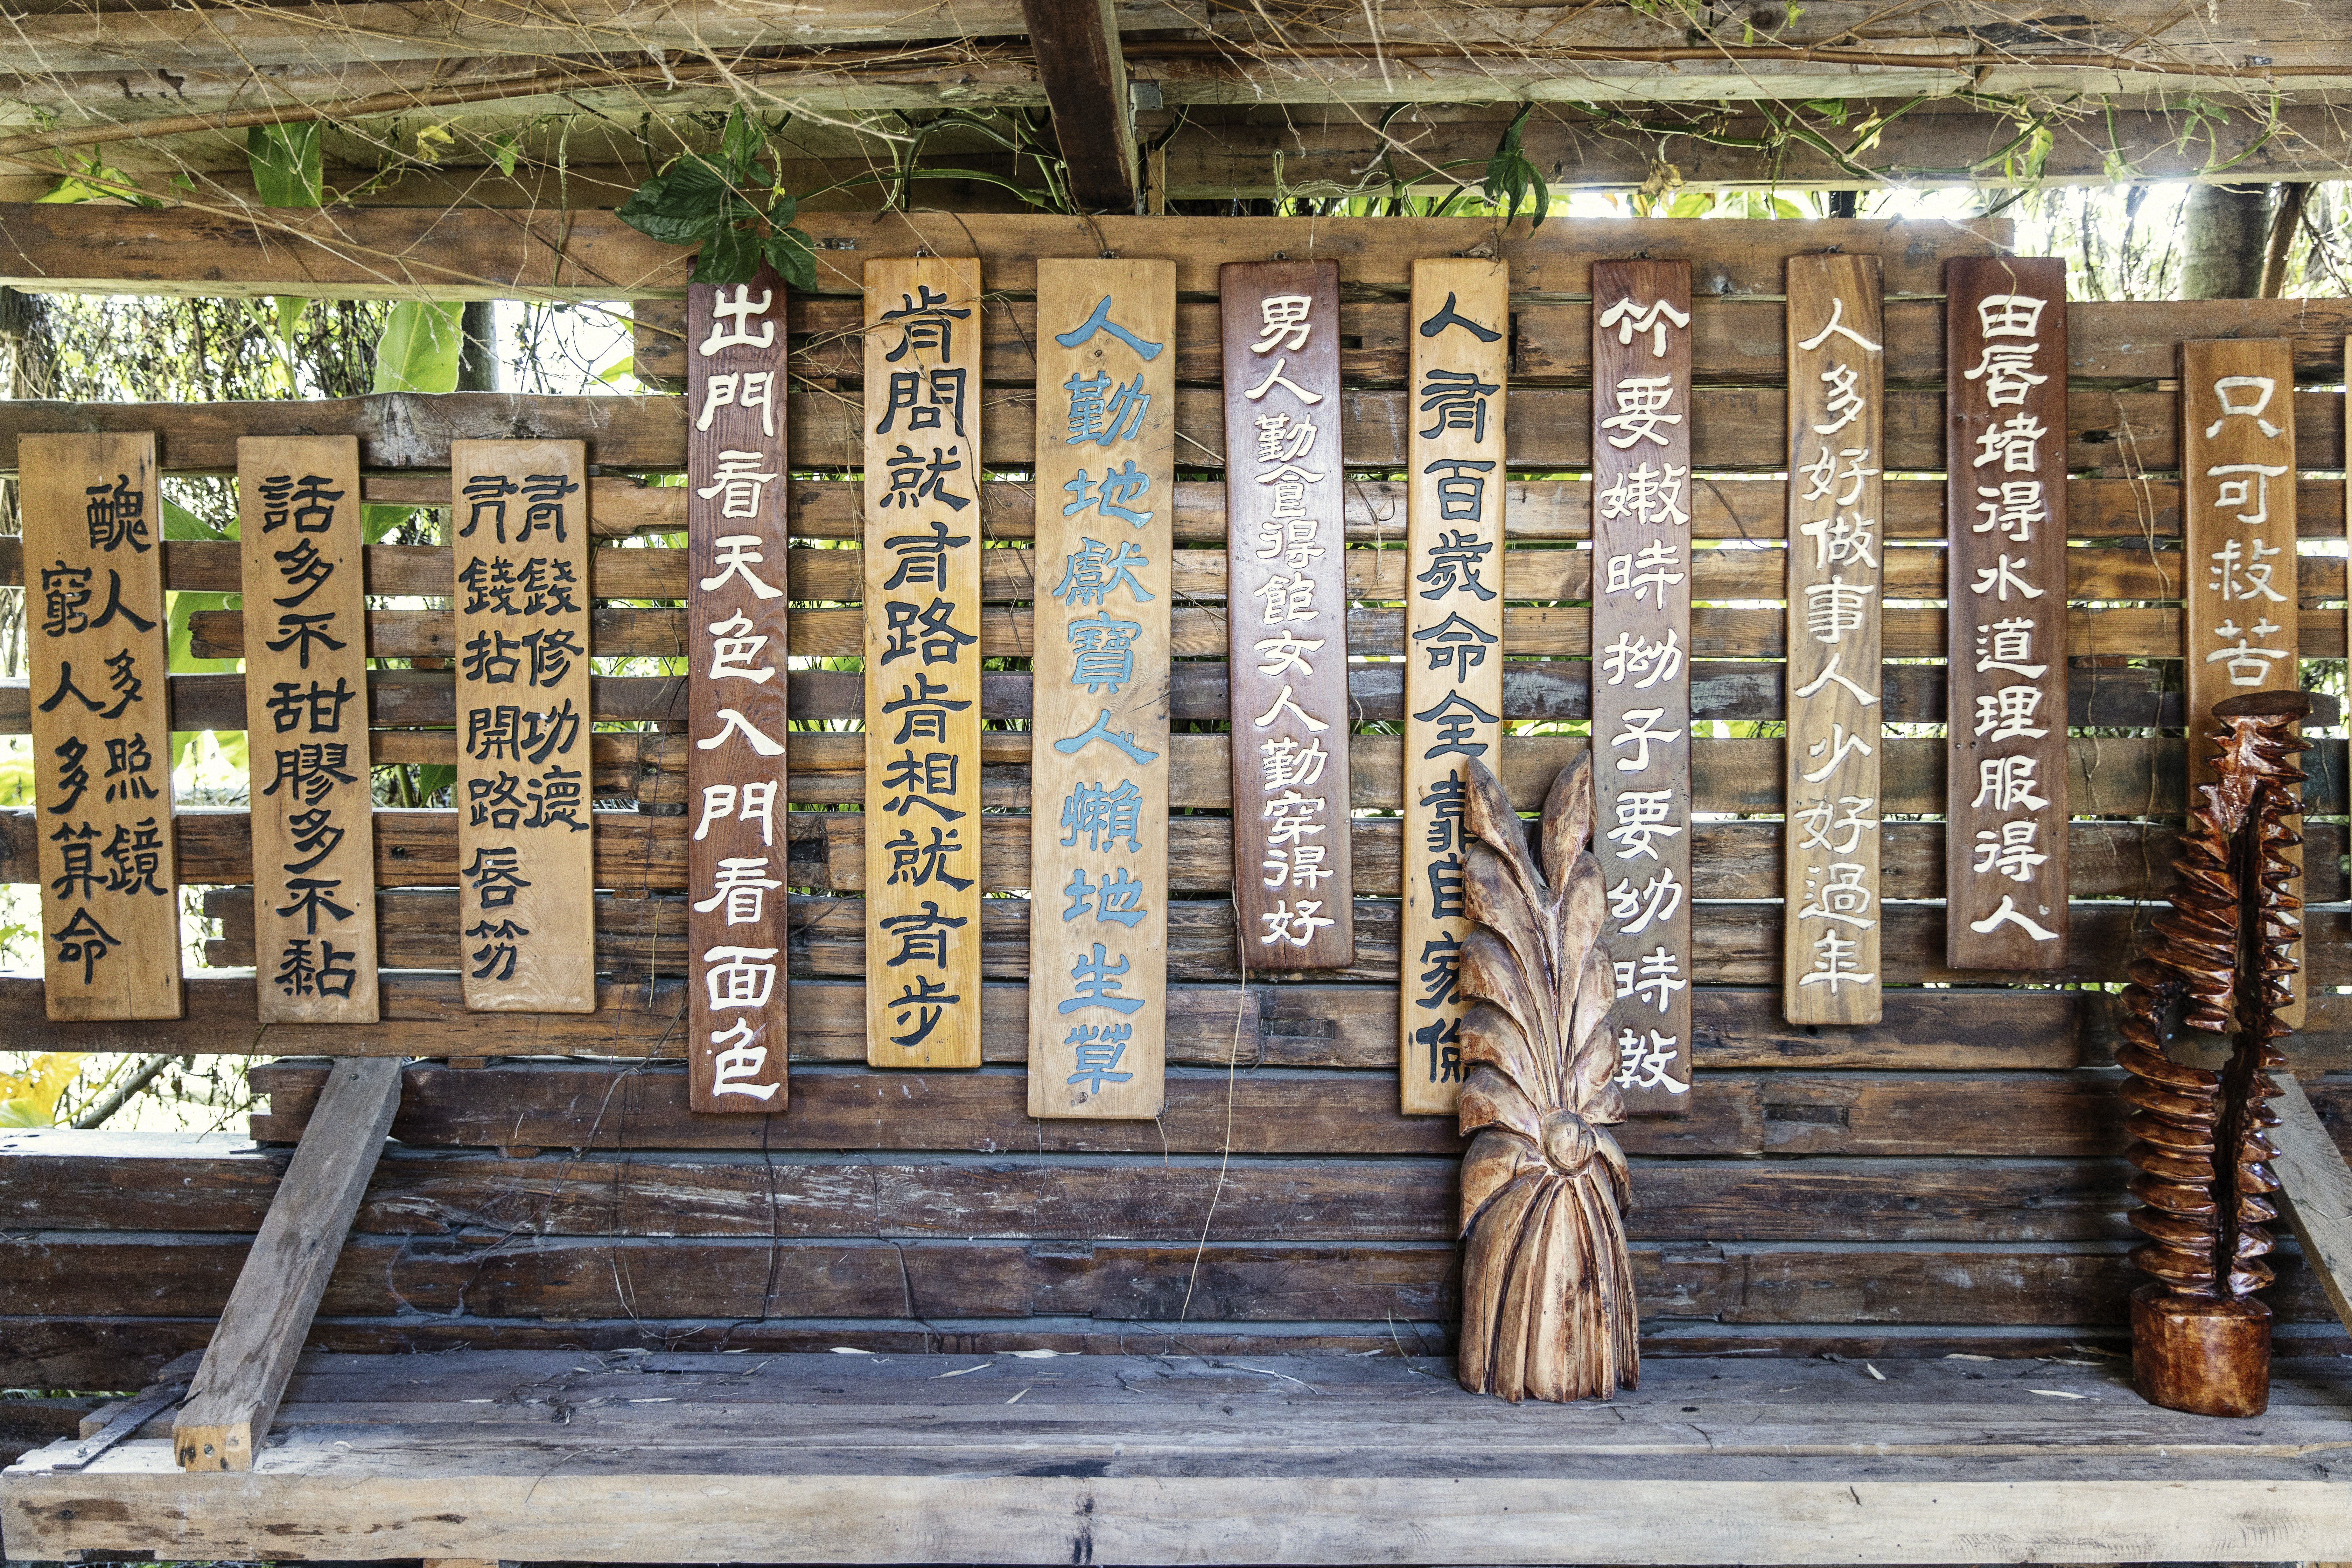 醜人多照鏡
窮人多算命
話多不甜膠多不黏
有錢修功德
冇錢拈開路唇竻
出門看天色入門看面色
肯問就有路肯想就有步
人勤地獻寶人懶地生草
男人勤食得飽女人勤穿得好
人有百歲命全靠自家
竹要嫩時拗子要幼時教
人多好做事人少好過年
田唇堵得水道理服得人
只可救苦